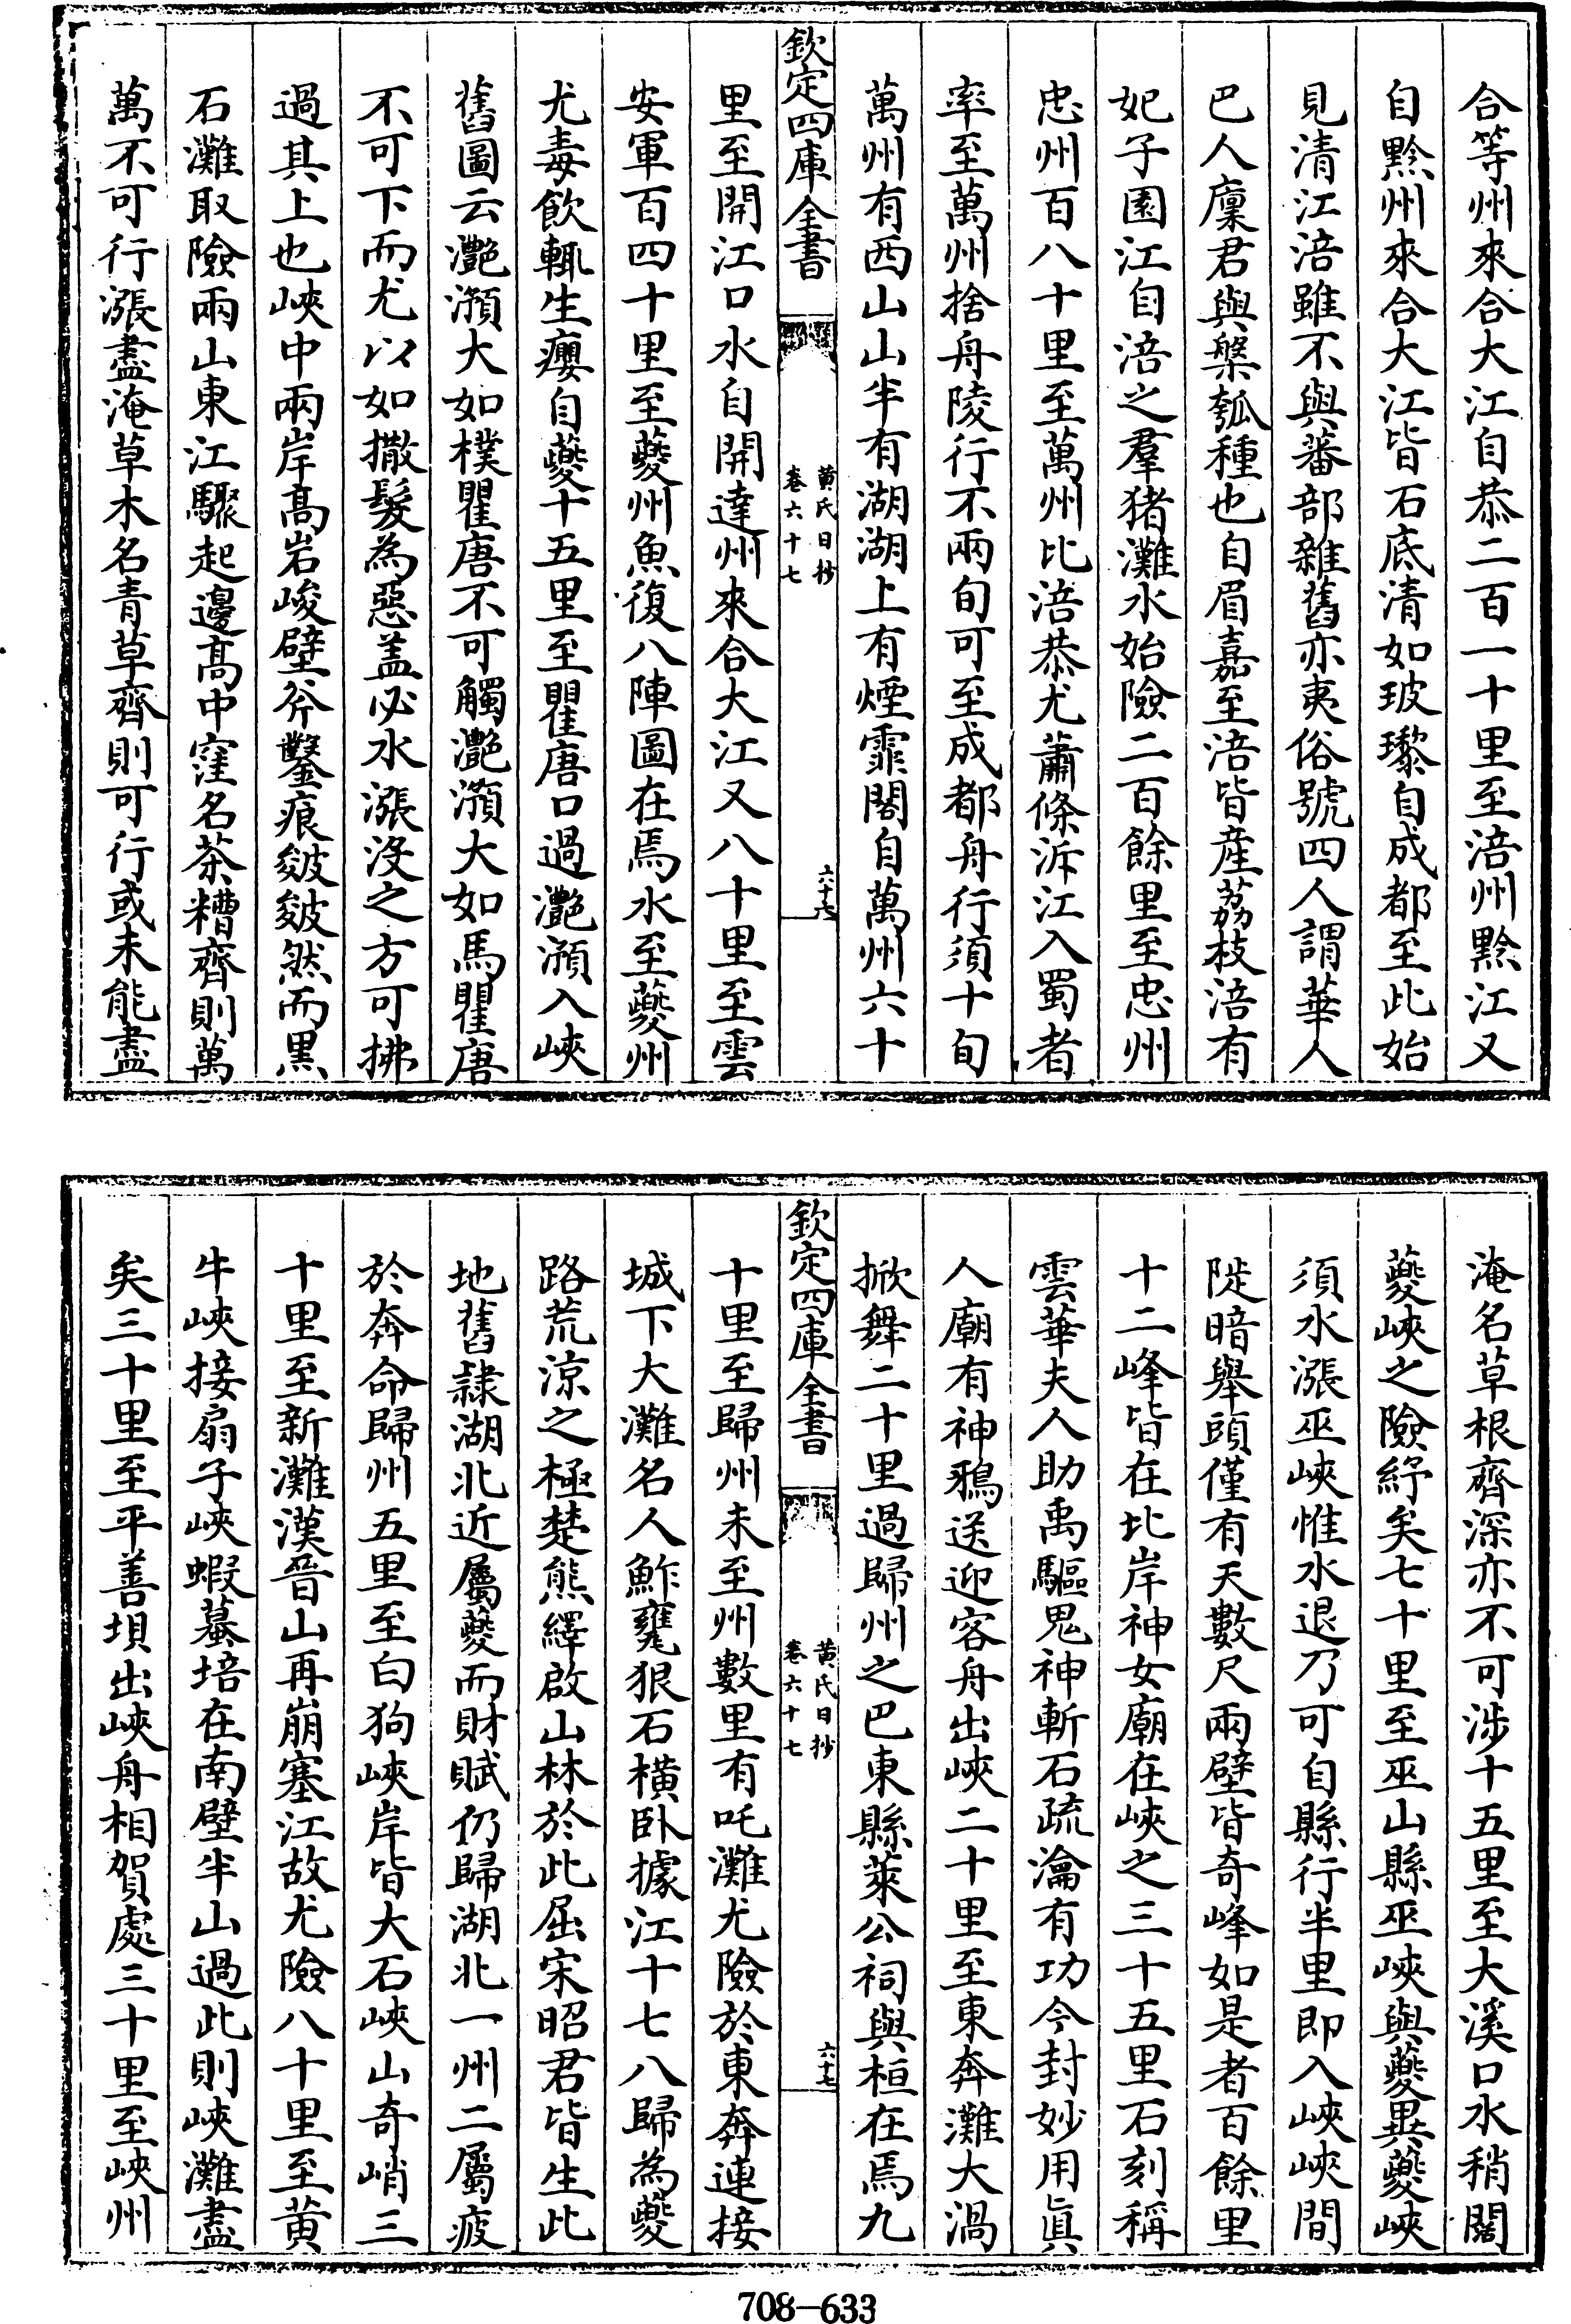 合等州來合大江自恭二百一十里至涪州黔江又
自黔州來合大江皆石底清如玻瓈自成都至此始
見清江涪雖不與蕃部雜舊亦夷俗號四人謂華人
巴人廩君與槃瓠種也自眉嘉至涪皆産荔枝涪有
妃子園江自涪之羣猪灘水始險二百餘里至忠州
忠州百八十里至萬州比涪恭尤蕭條泝江入蜀者
率至萬州捨舟陵行不兩旬可至成都舟行須十旬
萬州有西山山半有湖湖上有煙霏閣自萬州六十
欽定四庫全書
黄氏日抄
卷六十七
六十六
里至開江口水自開達州來合大江又八十里至雲
安軍百四十里至夔州魚復八陣圖在焉水至夔州
尤毒飲輒生癭自夔十五里至瞿唐口過灧澦入峽
舊圖云灧澦大如樸瞿唐不可觸灧澦大如馬瞿唐
不可下而尤以如撒髮為惡盖必水漲沒之方可拂
過其上也峽中兩岸髙岩峻壁斧鑿痕皴皴然而黑
石灘取險兩山東江驟起邊髙中窪名茶糟齊則萬
萬不可行漲盡淹草木名青草齊則可行或未能盡
淹名草根齊深亦不可涉十五里至大溪口水稍闊
夔峽之險紓矣七十里至巫山縣巫峽與夔異夔峽
須水漲巫峽惟水退乃可自縣行半里即入峽峽間
陡暗舉頭僅有天數尺兩壁皆奇峰如是者百餘里
十二峰皆在北岸神女廟在峽之三十五里石刻稱
雲華夫人助禹驅鬼神斬石疏瀹有功今封妙用眞
人廟有神鴉送迎客舟出峽二十里至東奔灘大渦
掀舞二十里過歸州之巴東縣萊公祠與桓在焉九
欽定四庫全書
黄氏日抄
卷六十七
六十七
十里至歸州未至州數里有吒灘尤險於東奔連接
城下大灘名人鮓甕狠石橫卧據江十七八歸為夔
路荒涼之極楚熊繹啟山林於此屈宋昭君皆生此
地舊隸湖北近屬夔而財賦仍歸湖北一州二屬疲
於奔命歸州五里至白狗峽岸皆大石峽山奇峭三
十里至新灘漢晉山再崩塞江故尤險八十里至黄
牛峽接扇子峽蝦蟇培在南壁半山過此則峽灘盡
矣三十里至平善垻出峽舟相賀處三十里至峽州
708-633